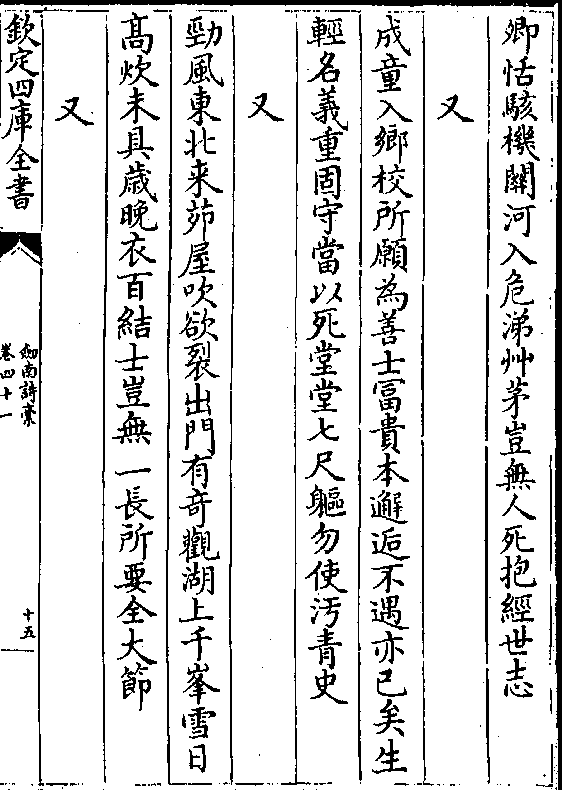 卿恬駭機關河入危涕艸茅豈無人死抱經世志
又
成童入鄉校所願為善士冨貴本邂逅不遇亦已矣生
輕名義重固守當以死堂堂七尺軀勿使汚青史
又
勁風東北来茆屋吹欲裂出門有竒觀湖上千峯雪日
髙炊未具歳晚衣百結士豈無一長所要全大節
又
欽定四庫全書
劒南詩稾
卷四十一
十五